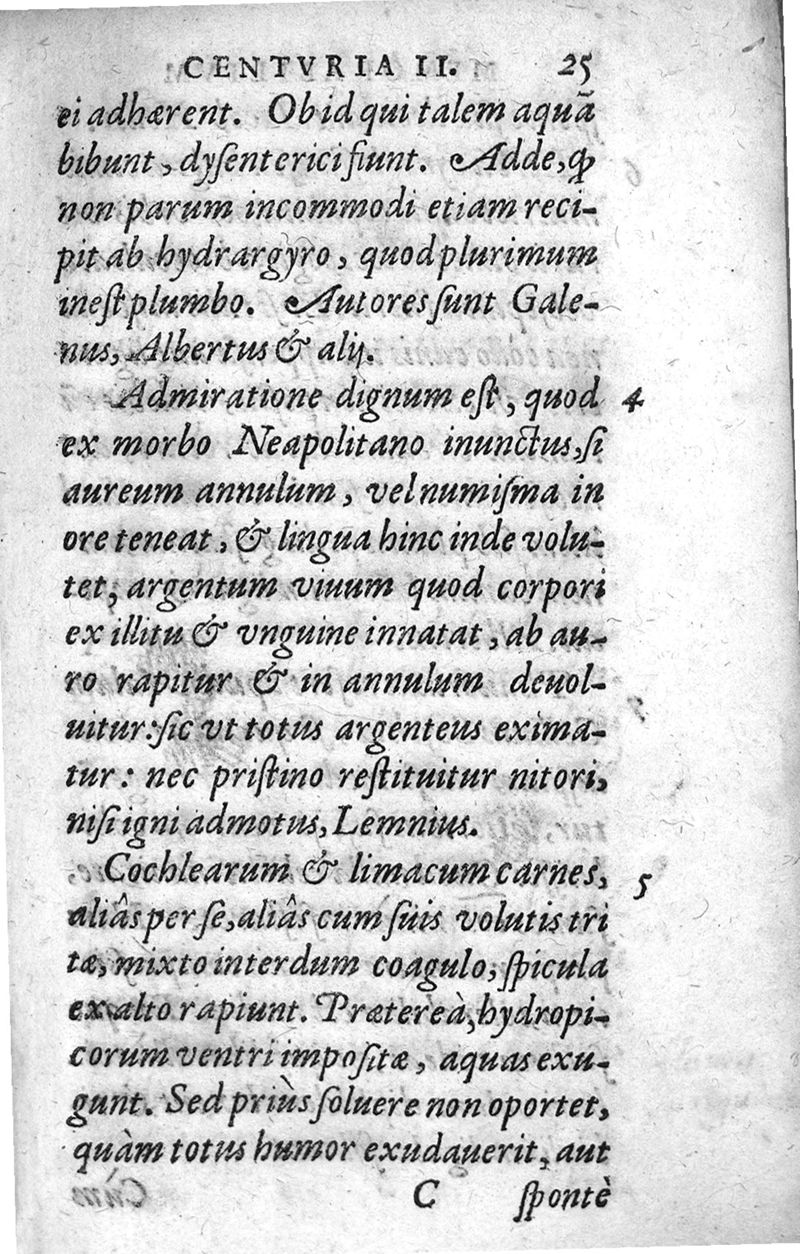 CENTVRIA II. 25
ei adhærent. Ob id qui talem aquā
bibunt, dyſenterici fiunt. Adde, ꝙ
non parum incommodi etiam reci-
pit ab hydrargyro, quod plurimum
ineſt plumbo. Autores ſunt Gale-
nus, Albertus & alij.
Admiratione dignum eſt, quod 4
ex morbo Neapolitano inunctus, ſi
aureum annulum, vel numiſma in
ore teneat, & lingua hinc inde volu-
tet, argentum viuum quod corpori
ex illitu & vnguine innatat, ab au-
ro rapitur & in annulum deuol-
uitur: ſic vt totus argenteus exima-
tur: nec priſtino reſtituitur nitori,
niſi igni admotus, Lemnius.
Cochlearum & limacum carnes, 5
aliâs per ſe, aliâs cum ſuis volutis tri
tæ, mixto interdum coagulo, ſpicula
ex alto rapiunt. Prætereà, hydropi-
corum ventri impoſitæ, aquas exu-
gunt. Sed priùs ſoluere non oportet,
quàm totus humor exudauerit, aut
C ſpontè